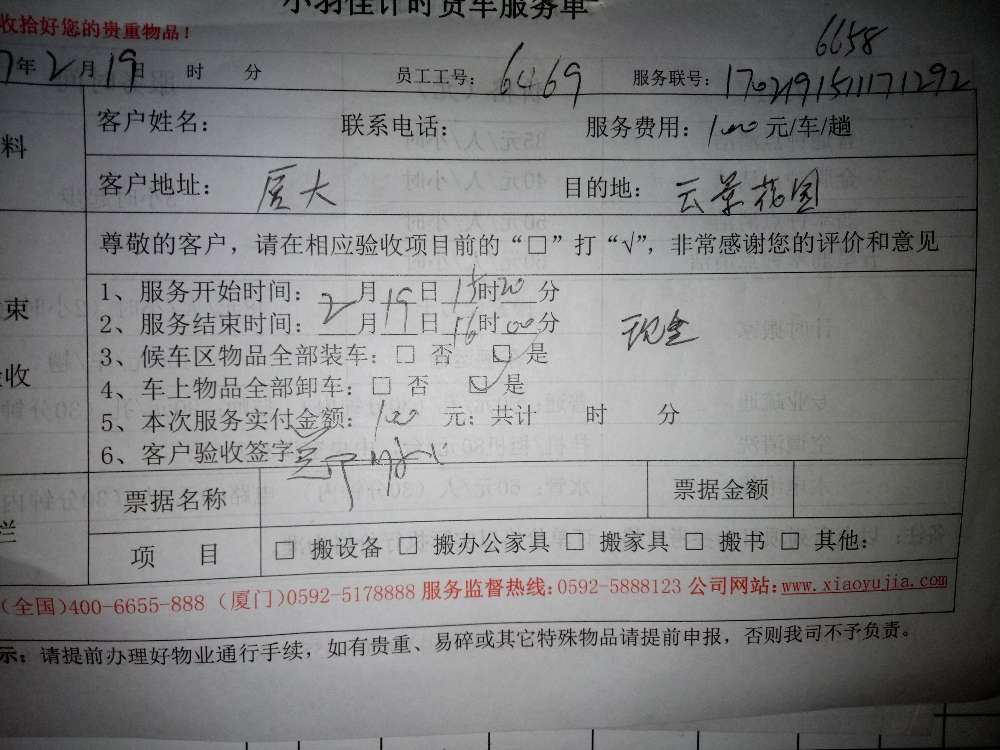 小羽佳计时货车服务单
收拾好您的贵重物品！
6658
7年2月19日 时 分 员工工号：6469 服务联号：1702191511171292
料 客户姓名： 联系电话： 服务费用：100元/车/趟
客户地址：厦大 目的地：云景花园
尊敬的客户，请在相应验收项目前的“□”打“√”，非常感谢您的评价和意见
束
验收
1、服务开始时间：2月19日15时20分
2、服务结束时间：2月19日16时00分 现金
3、候车区物品全部装车：□ 否 ☑ 是
4、车上物品全部卸车：□ 否 ☑ 是
5、本次服务实付金额：100元；共计 时 分
6、客户验收签字
栏 票据名称 票据金额
项 目 □ 搬设备 □ 搬办公家具 □ 搬家具 □ 搬书 □ 其他：
(全国)400-6655-888 (厦门)0592-5178888 服务监督热线：0592-5888123 公司网站：www.xiaoyujia.com
示：请提前办理好物业通行手续，如有贵重、易碎或其它特殊物品请提前申报，否则我司不予负责。